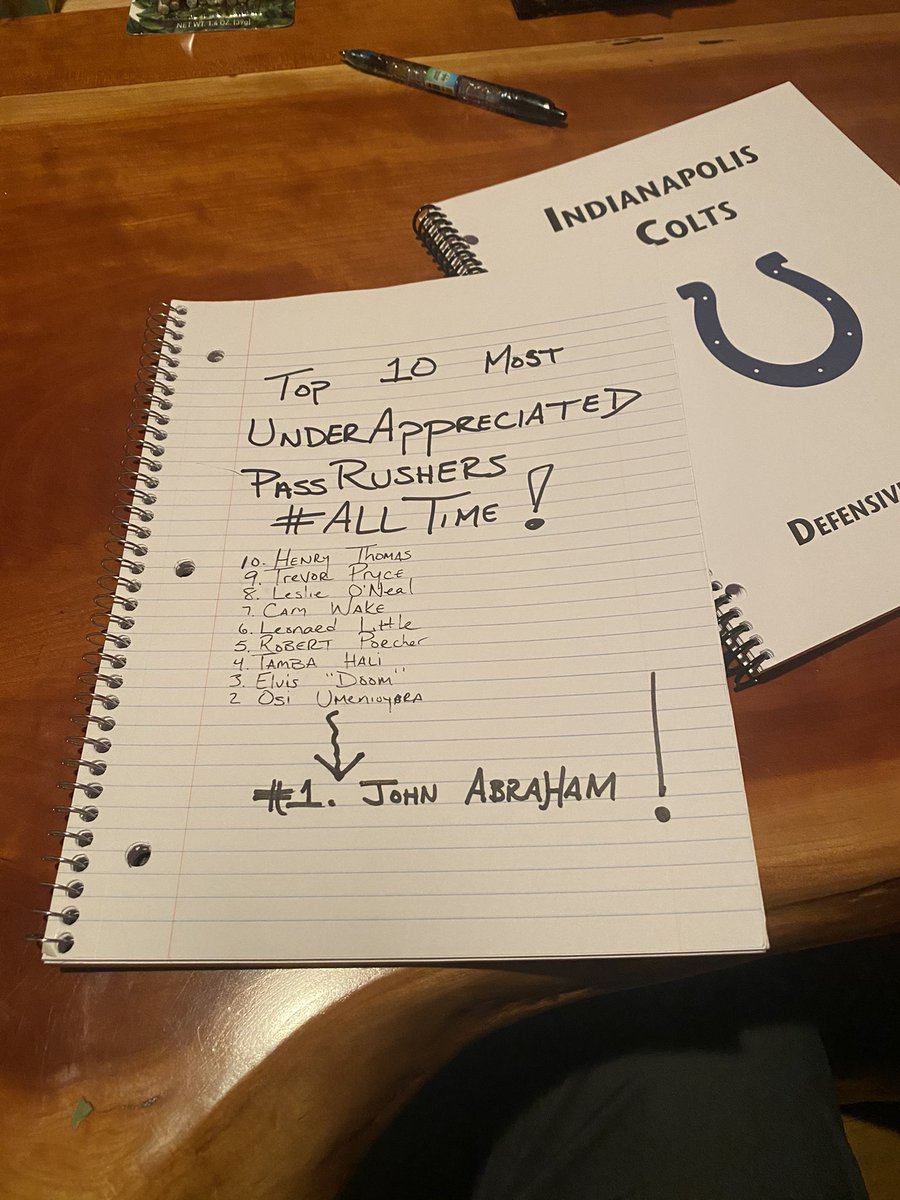 NET WT. 1.4 OZ. (37g)
INDIANAPOLIS
COLTS
DEFENSIVE
TOP 10 MOST
UNDERAPPRECIATED
PASS RUSHERS
#ALL TIME!
10. HENRY THOMAS
9. TREVOR PRYCE
8. Leslie O'Neal
7. CAM WAKE
6. Leonard Little
5. ROBERT Poecher
4. TAMBA HALI
3. Elvis "DOOM"
2 OSI UMENIOYARA
#1. JOHN ABRAHAM !